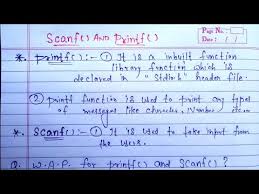 Scanf() AND Printf()
Page No.
Date:
*. Printf() :- ① It is a inbuilt function
library function which is
declared in "Stdioh" header file.
② printf function is used to print any types
of messages like character, Number etc.
*. Scanf() :- ① It is used to take input from
the user.
Q. W.A.P. for printf() and Scanf() ?